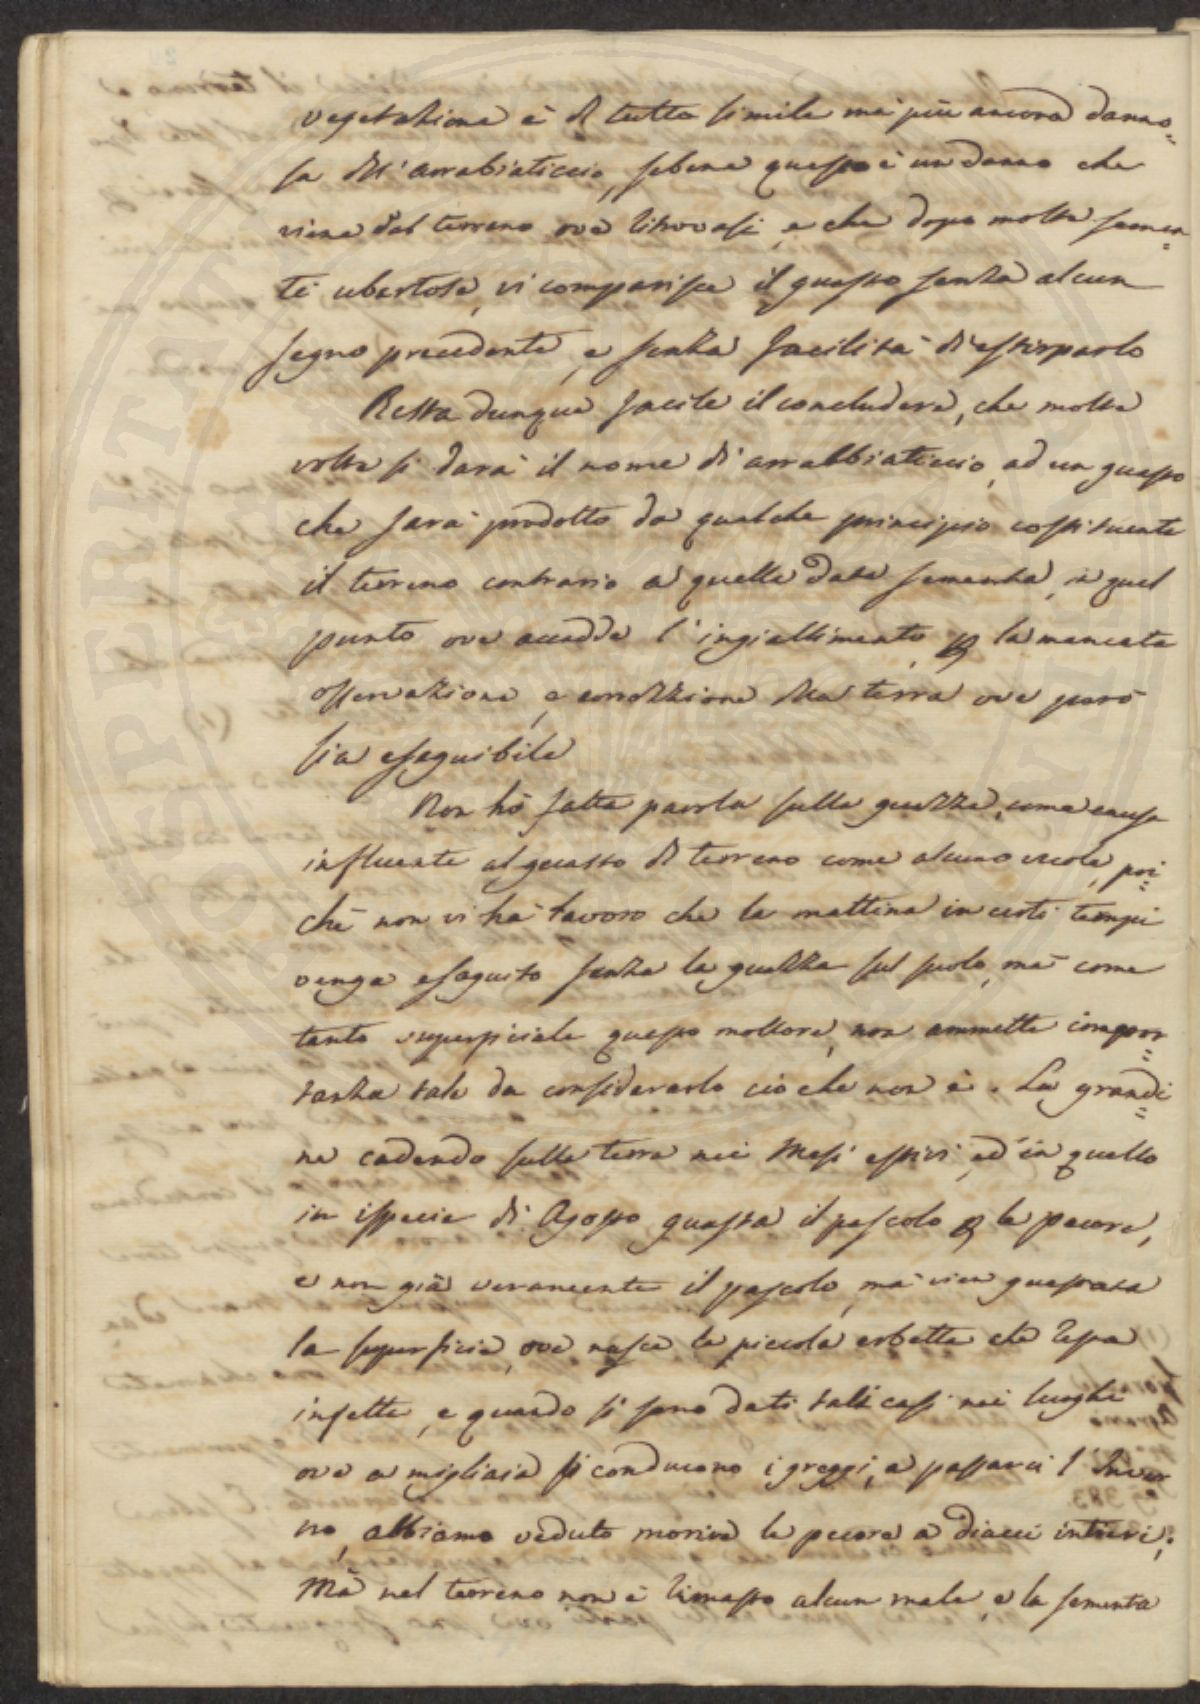 vegetazione è di tutto simile mà più ancora danno=
sa dell'arrabiaticcio, sebene questo è un danno che
viene dal terreno ove ritrovasi, e che dopo molte semen=
ti ubertose, vi comparisce il guasto senza alcun
segno precedente, e senza facilità di estirparlo
Resta dunque facile il concludere, che molte
volte si darà il nome di arrabbiaticcio, ad un guasto
che sarà prodotto da qualche principio costituente
il terreno contrario a quella data sementa, in quel
punto ove accadde l'ingiallimento, p la mancata
osservazione, e condizione della terra ove però
sia eseguibile
Non hò fatta parola sulla guazza, come causa
influente al guasto di terreno come alcuno crede, poi=
chè non vi hà lavoro che la mattina in certi tempi
venga eseguito senza la guazza sul suolo, mà come
tanto superficiale questo mottore, non ammette impor=
tanza tale da considerarlo ciò che non è. La grandi=
ne cadendo sulla terra nei Mesi estivi, ed in quello
in ispecie di Agosto guasta il pascolo p le pecore,
e non già veramente il pascolo, mà vien guastata
la superficie, ove nasce le piccole erbette che resta
infetta, e quando si sono dati tali casi nei luoghi
ove a migliaia si conducono i greggi, a passarci l'Inver
no, abbiamo veduto morire le pecore a diacci intieri;
Mà nel terreno non è rimasto alcun male, e la sementa
PERITAT